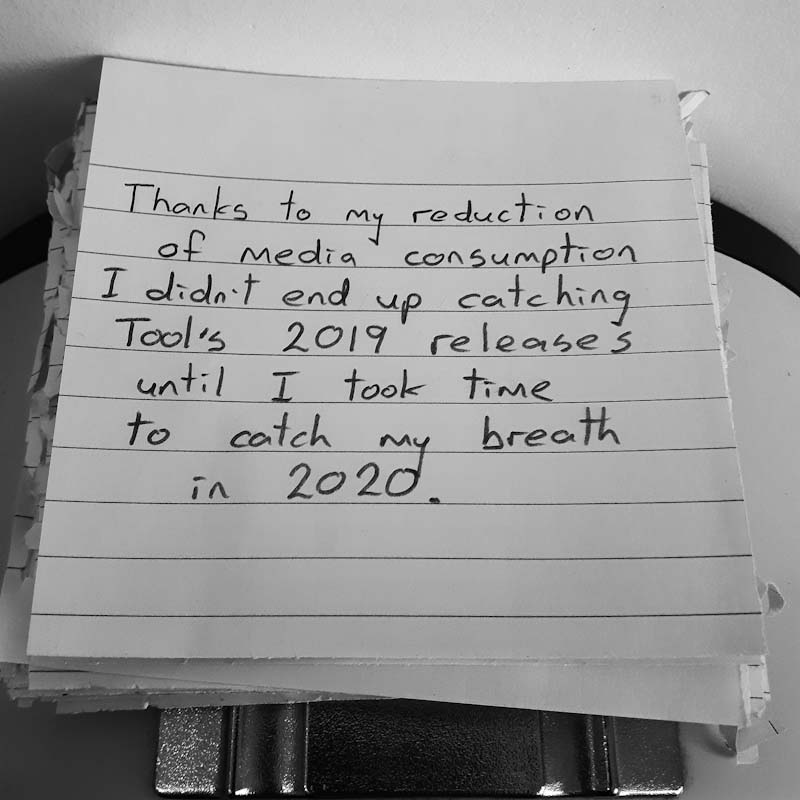 Thanks to my reduction
of media consumption
I didn't end up catching
Tool's 2019 releases
until I took time
to catch my breath
in 2020.